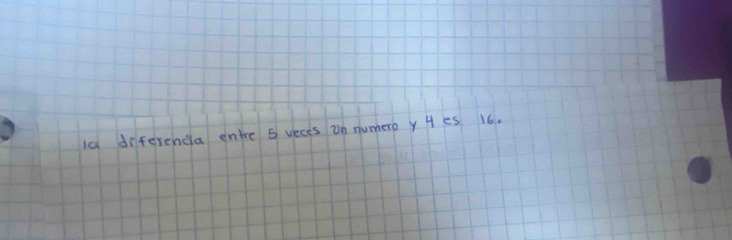 la diferencia entre 5 veces un numero y 4 es 16.